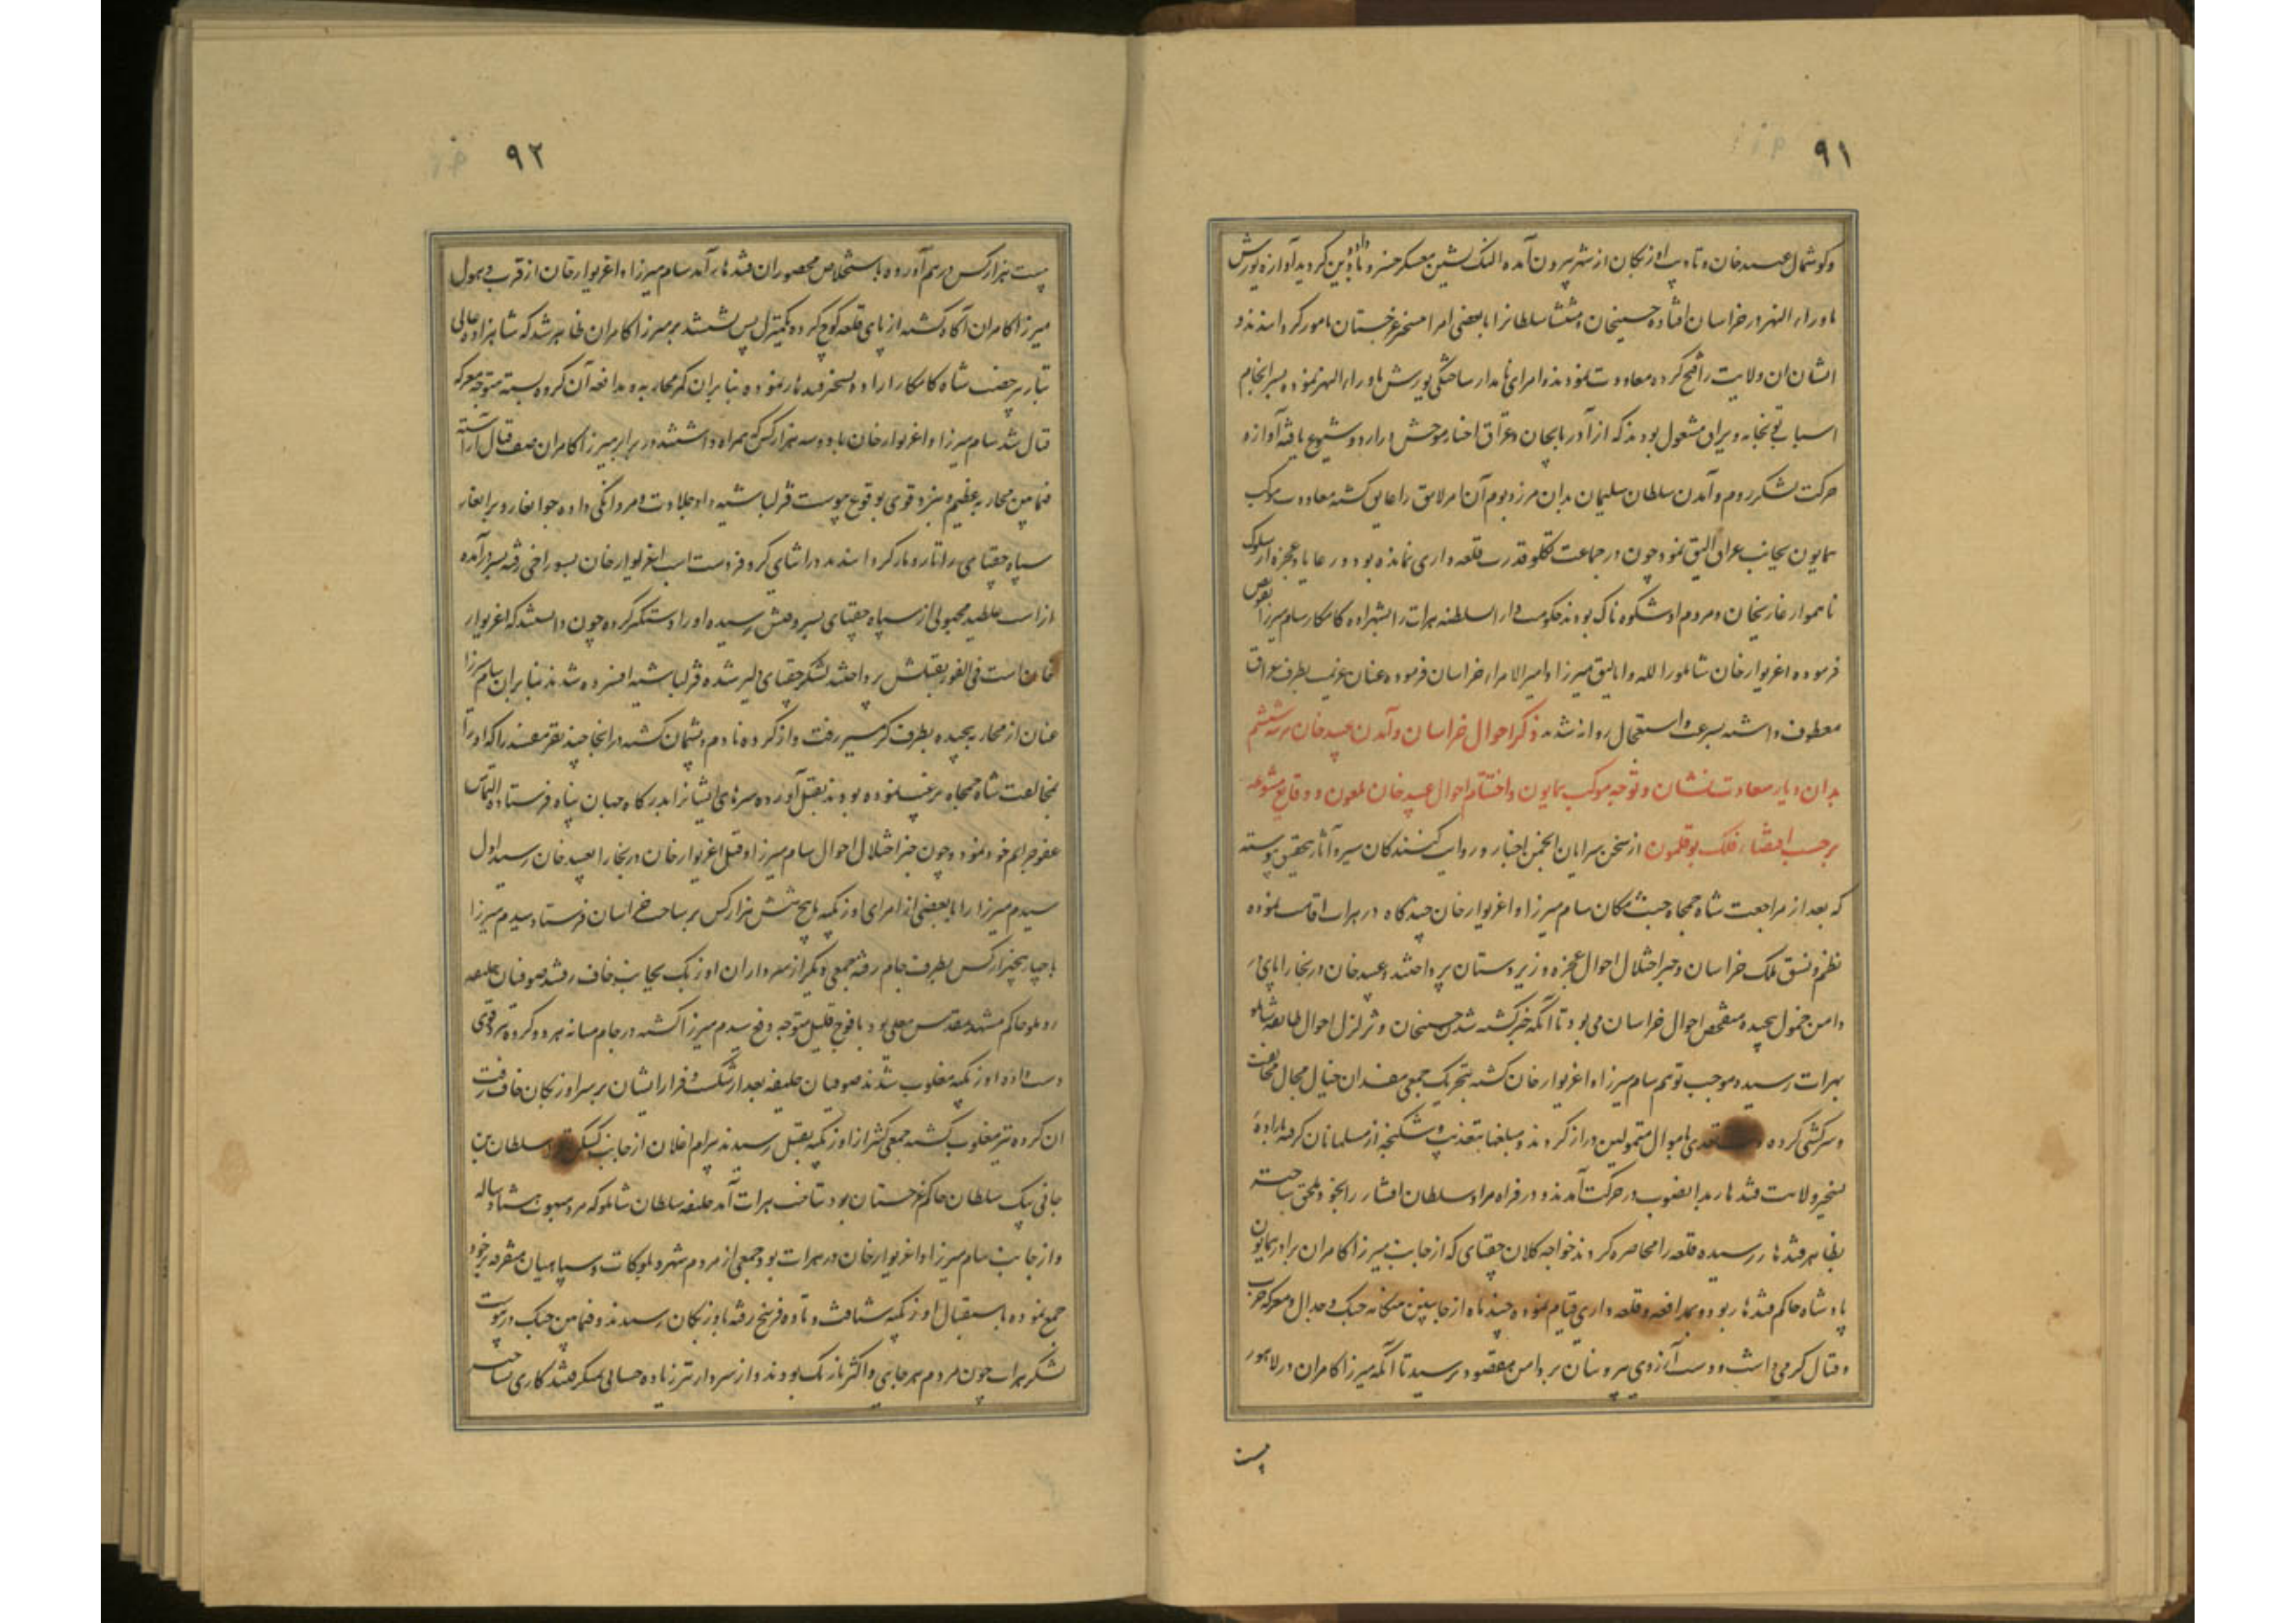 ۹۱
و گوشمال عبید خان و تادیب اوزبکان از شهر بیرون آمده النک نشین معسکر
ماوراء النهر در خراسان افتاده حسینخان و منتشا سلطانرا با بعضی امرا مسخر غرجستان مامور گردانیدند و
ایشان ان ولایت را فتح کرده معاودت نمودند و امرای نامدار ساختگی یورش ماوراء النهر نموده بسرانجام
اسباب توپخانه و یراق مشغول بودند که از آذربایجان و عراق اخبار موحش در اردو شیوع یافته آوازه
حرکت لشکر روم و آمدن سلطان سلیمان بدان مرز و بوم آن امر لایق را عایق گشته معاودت موکب
همایون بجانب عراق الیق نمود چون در جماعت تکلو قدرت قلعه داری نمانده بود و رعایا و عجزه از سلوک
ناهموار غازیخان و مردم او شکوه ناک بودند حکومت دار السلطنه هرات را بشهزاده کامکار سام میرزا تفویض
فرموده اغزیوار خان شاملو را لله و اتالیق میرزا و امیر الامراء خراسان فرموده عنان عزیمت بطرف عراق
معطوف داشته بسرعت و استعجال روانه شدند ذکر احوال خراسان و آمدن عبید خان مرتبه ششم
بدان دیار سعادت نشان و توجه موکب همایون و اختتام احوال عبید خان ملعون و وقایع متنوعه
برحسب اقتضاء فلک بوقلمون از سخن سرایان انجمن اخبار و روایت کنندگان سیر و آثار بتحقیق پیوسته
که بعد از مراجعت شاه جمجاه جنت مکان سام میرزا و اغزیوار خان چندگاه در هرات اقامت نموده
نظم و نسق ملک خراسان و جبر اختلال احوال عجزه و زیردستان پرداختند و عبید خان در بخارا پای در
دامن خمول پیچیده متفحص احوال خراسان می بود تا آنکه خبر کشته شدن حسینخان و تزلزل احوال طایفه شاملو
بهرات رسیده موجب توهم سام میرزا و اغزیوار خان گشته بتحریک جمعی مفسدان خیال محال مخالفت
و سرکشی کرده دست تعدی باموال متمولین دراز کردند و مبلغها بتعذیب و شکنجه از مسلمانان گرفته باراده
تسخیر ولایت قندهار بدانصوب در حرکت آمدند و در فراه مراد سلطان افشار را بخود ملحق ساخته
بظاهر قندهار رسیده قلعه را محاصره کردند خواجه کلان چغتای که از جانب میرزا کامران برادر همایون
پادشاه حاکم قندهار بود و بمدافعه و قلعه داری قیام نموده چند ماه از جانبین هنگامه جنگ و جدال و معرکه حرب
و قتال گرمی داشت و دست آرزوی بیرونیان بر دامن مقصود نرسید تا آنکه میرزا کامران در لاهور
بیست
۹۲
بیست هزار کس درهم آورده باستخلاص محصوران قندهار آمد سام میرزا و اغزیوار خان از قرب وصول
میرزا کامران آگاه گشته از پای قلعه کوچ کرده یکمنزل پس نشستند بر میرزا کامران ظاهر شد که شاهزاده عالی
تبار بی رخصت شاه کامکار اراده تسخیر قندهار نموده بنابران کمر محاربه و مدافعه آن گروه بسته متوجه معرکه
قتال شد سام میرزا و اغزیوار خان با دو سه هزار کس که همراه داشتند در برابر میرزا کامران صف قتال آراسته
فیمابین محاربه عظیم و نبرد قوی بوقوع پیوست قزلباشیه داد جلادت و مردانگی داده جوانغار و برانغار
سپاه چغتای را تار و مار گردانیدند در اثنای کر و فر دست اسب اغزیوار خان بسوراخی رفته بسر درآمده
از اسب غلطید مجهولی از سپاه چغتای بسر وقتش رسیده او را دستگیر کرده چون دانستند که اغزیوار
خان است فی الفور بقتلش پرداختند لشکر چغتای دلیر شده قزلباشیه افسرده شدند بنابران سام میرزا
عنان از محاربه پیچیده بطرف گرمسیر رفت و از کرده نادم و پشیمان گشته در انجا چند نفر مفسد را که او را
بمخالفت شاه جمجاه ترغیب نموده بودند بقتل آورده سرهای ایشانرا بدرگاه جهان پناه فرستاده التماس
عفو جرایم خود نمود و چون خبر اختلال احوال سام میرزا و قتل اغزیوار خان در بخارا بعبید خان رسید اول
بیدم میرزا را با بعضی از امرای اوزبکیه و پنج شش هزار کس بر ساحت خراسان فرستاد بیدم میرزا
با چهار پنجهزار کس بطرف جام رفته جمعی دیگر از سرداران اوزبک بجانب خاف رفتند صوفیان خلیفه
روملو حاکم مشهد مقدس معلی بود با فوج قلیل متوجه دفع بیدم میرزا گشته در جام میانه هر دو گروه نبرد قوی
دست داده اوزبکیه مغلوب شدند صوفیان خلیفه بعد از شکست و فرار ایشان بر سر اوزبکان خاف رفت
ان گروه نیز مغلوب گشته جمعی کثیر از اوزبکیه بقتل رسیدند بیرام اغلان از جانب سلطان بن
جانی بیک سلطان حاکم غرجستان بود بتاخت هرات آمد خلیفه سلطان شاملو که مرد هشتاد ساله
و از جانب سام میرزا و اغزیوار خان در هرات بود جمعی از مردم شهر و بلوکات و سپاهیان متفرقه بر خود
جمع نموده باستقبال اوزبکیه شتافت و تا ده فرسخ رفته باوزبکان رسیدند و فیمابین جنگ در پیوست
لشکر هرات چون مردم هرجایی و اکثر تازیک بودند و از سردار نیز زیاده حسابی نمیگرفتند کاری نساختند